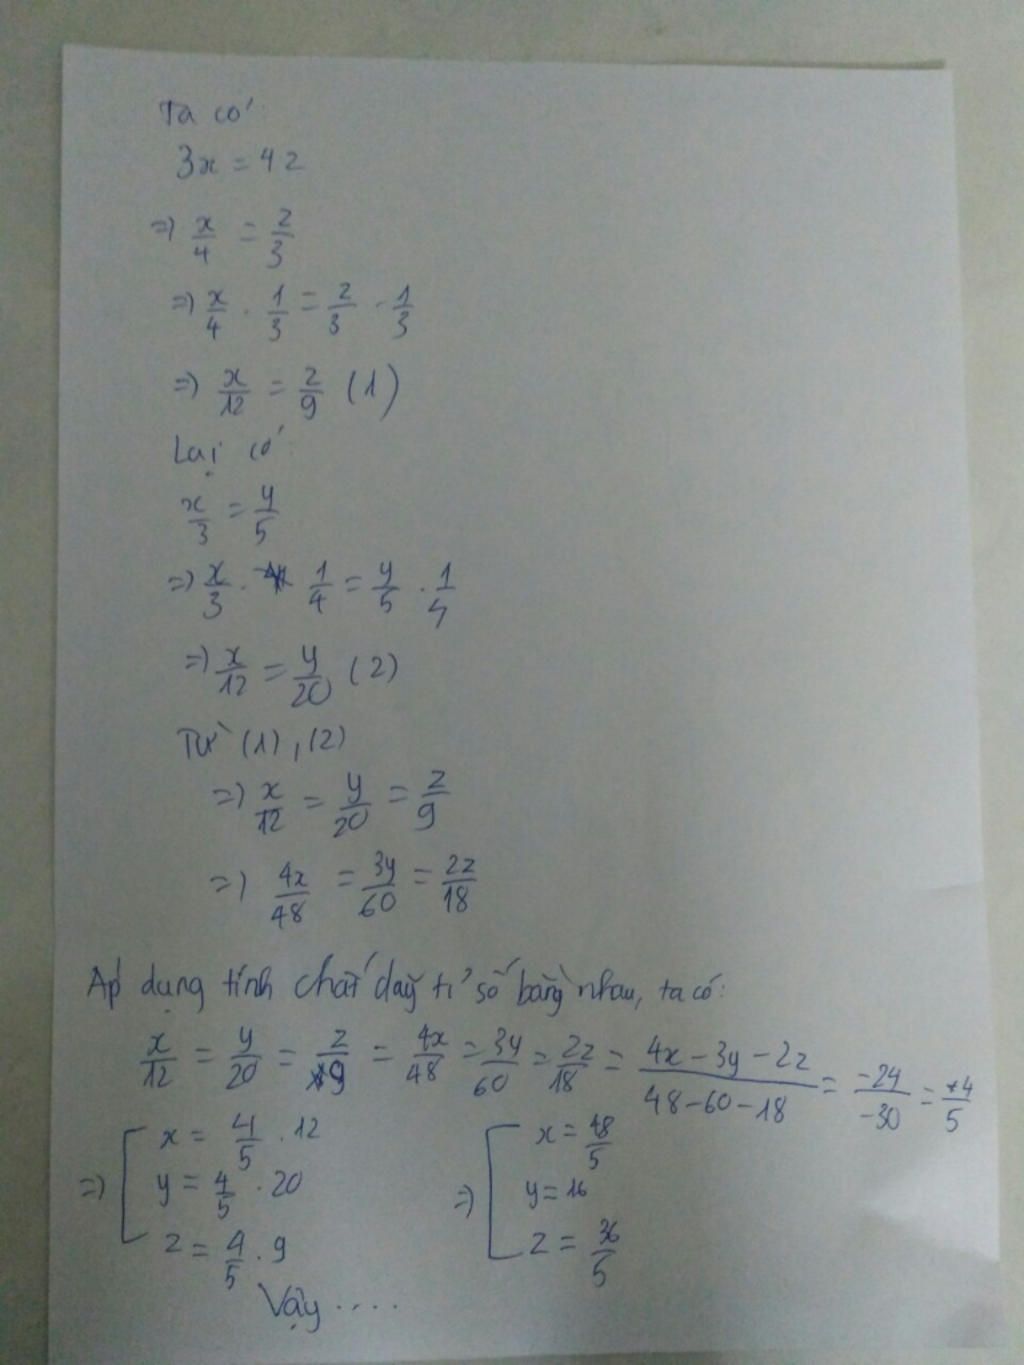 Ta có:
3x = 4z
=> x/4 = z/3
=> x/4 . 1/3 = z/3 . 1/3
=> x/12 = z/9 (1)
Lại có:
x/3 = y/5
=> x/3 . 1/4 = y/5 . 1/4
=> x/12 = y/20 (2)
Từ (1), (2)
=> x/12 = y/20 = z/9
=> 4x/48 = 3y/60 = 2z/18
Áp dụng tính chất dãy tỉ số bằng nhau, ta có:
x/12 = y/20 = z/9 = 4x/48 = 3y/60 = 2z/18 = (4x - 3y - 2z)/(48 - 60 - 18) = -24/-30 = +4/5
=> [ x = 4/5 . 12 => [ x = 48/5
y = 4/5 . 20 y = 16
z = 4/5 . 9 z = 36/5
Vậy ....